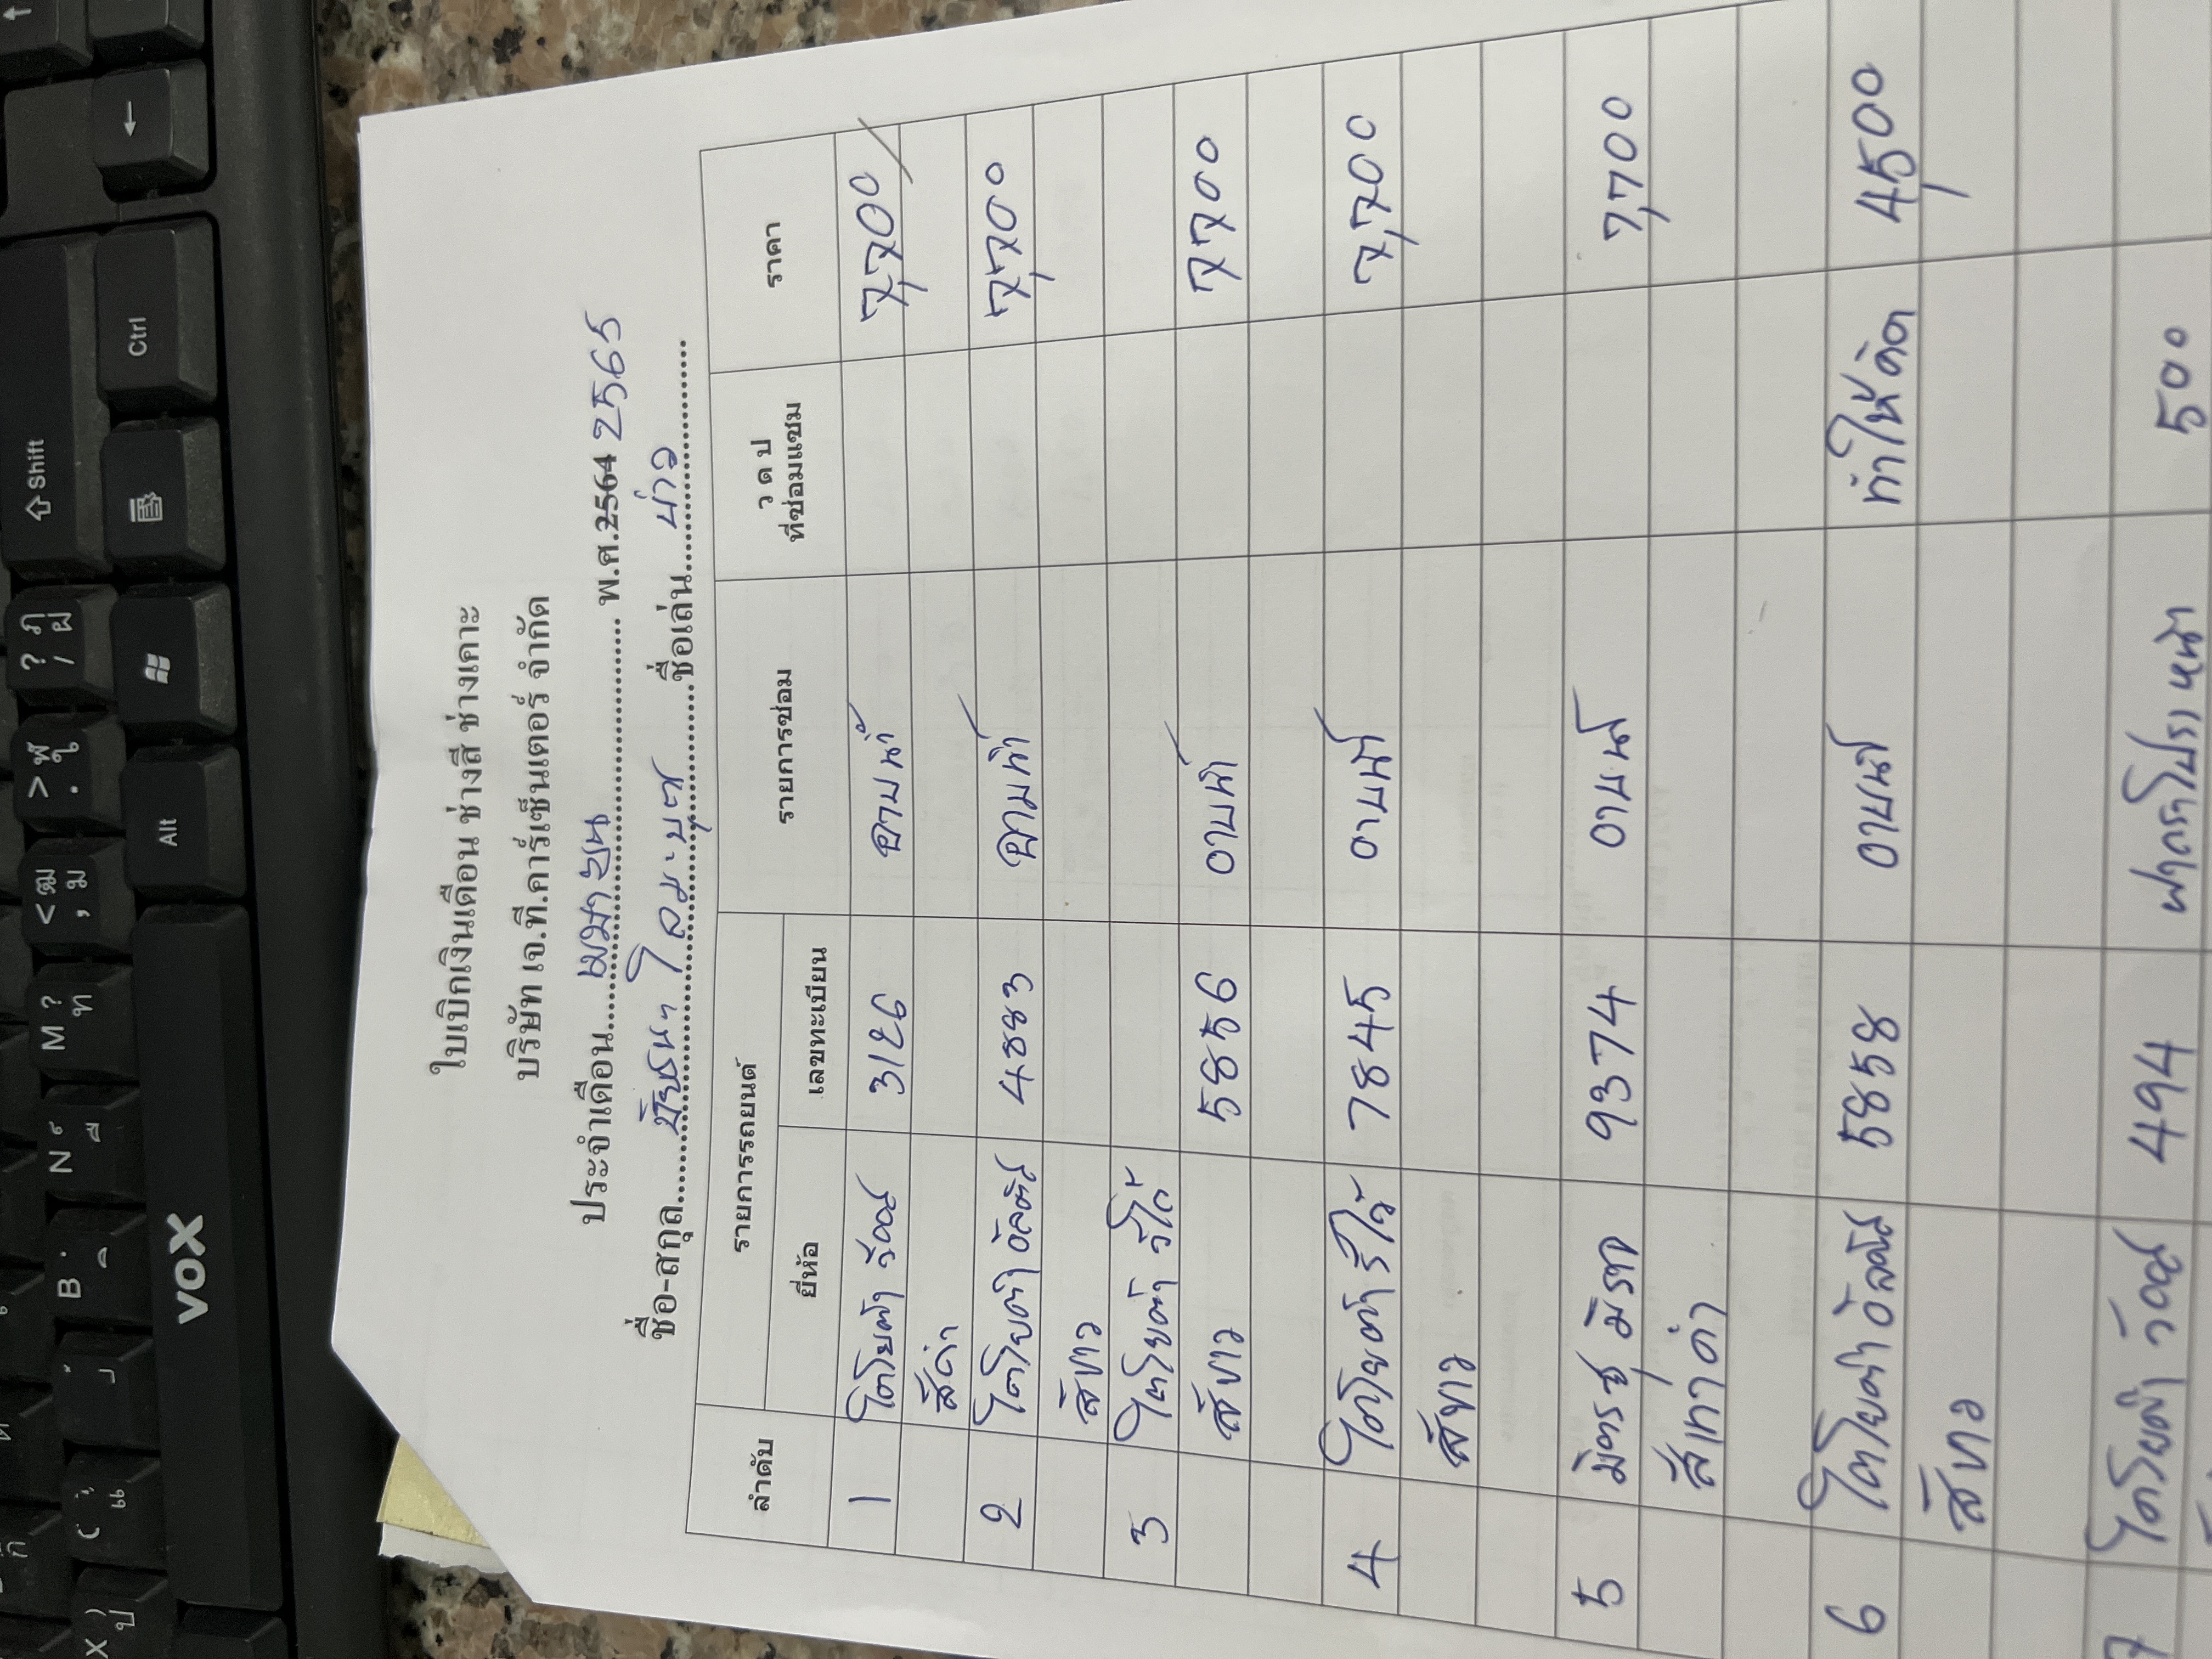 ใบเบิกเงินเดือน ช่างสี ช่างเคาะ
บริษัท เจ.ที.คาร์เซ็นเตอร์ จำกัด
ประจำเดือน....เมษายน.... พ.ศ.2564 2565
ชื่อ-สกุล........ชื่อเล่น....บ่าว....
ลำดับ รายการรถยนต์ รายการซ่อม ว ด ป ที่ซ่อมแซม ราคา
ยี่ห้อ เลขทะเบียน
1 โตโยต้า วีออส 3126 อาบน้ำ 7,700
สีดำ
2 โตโยต้า อัลติส 4883 อาบน้ำ 7,700
สีขาว
3 โตโยต้า รีโว้
สีขาว 5856 อาบน้ำ 7700
4 โตโยต้า รีโว้ 7845 อาบน้ำ 7,700
สีขาว
5 มิตรซู มิราจ 9374 อาบน้ำ 7,700
สีเทาดำ
6 โตโยต้า อัลติส 5858 อาบน้ำ ทำให้ดิด 4,500
สีขาว
7 โตโยต้า วีออส 494 หน้า 500
Shift
Ctrl
Alt
VOX